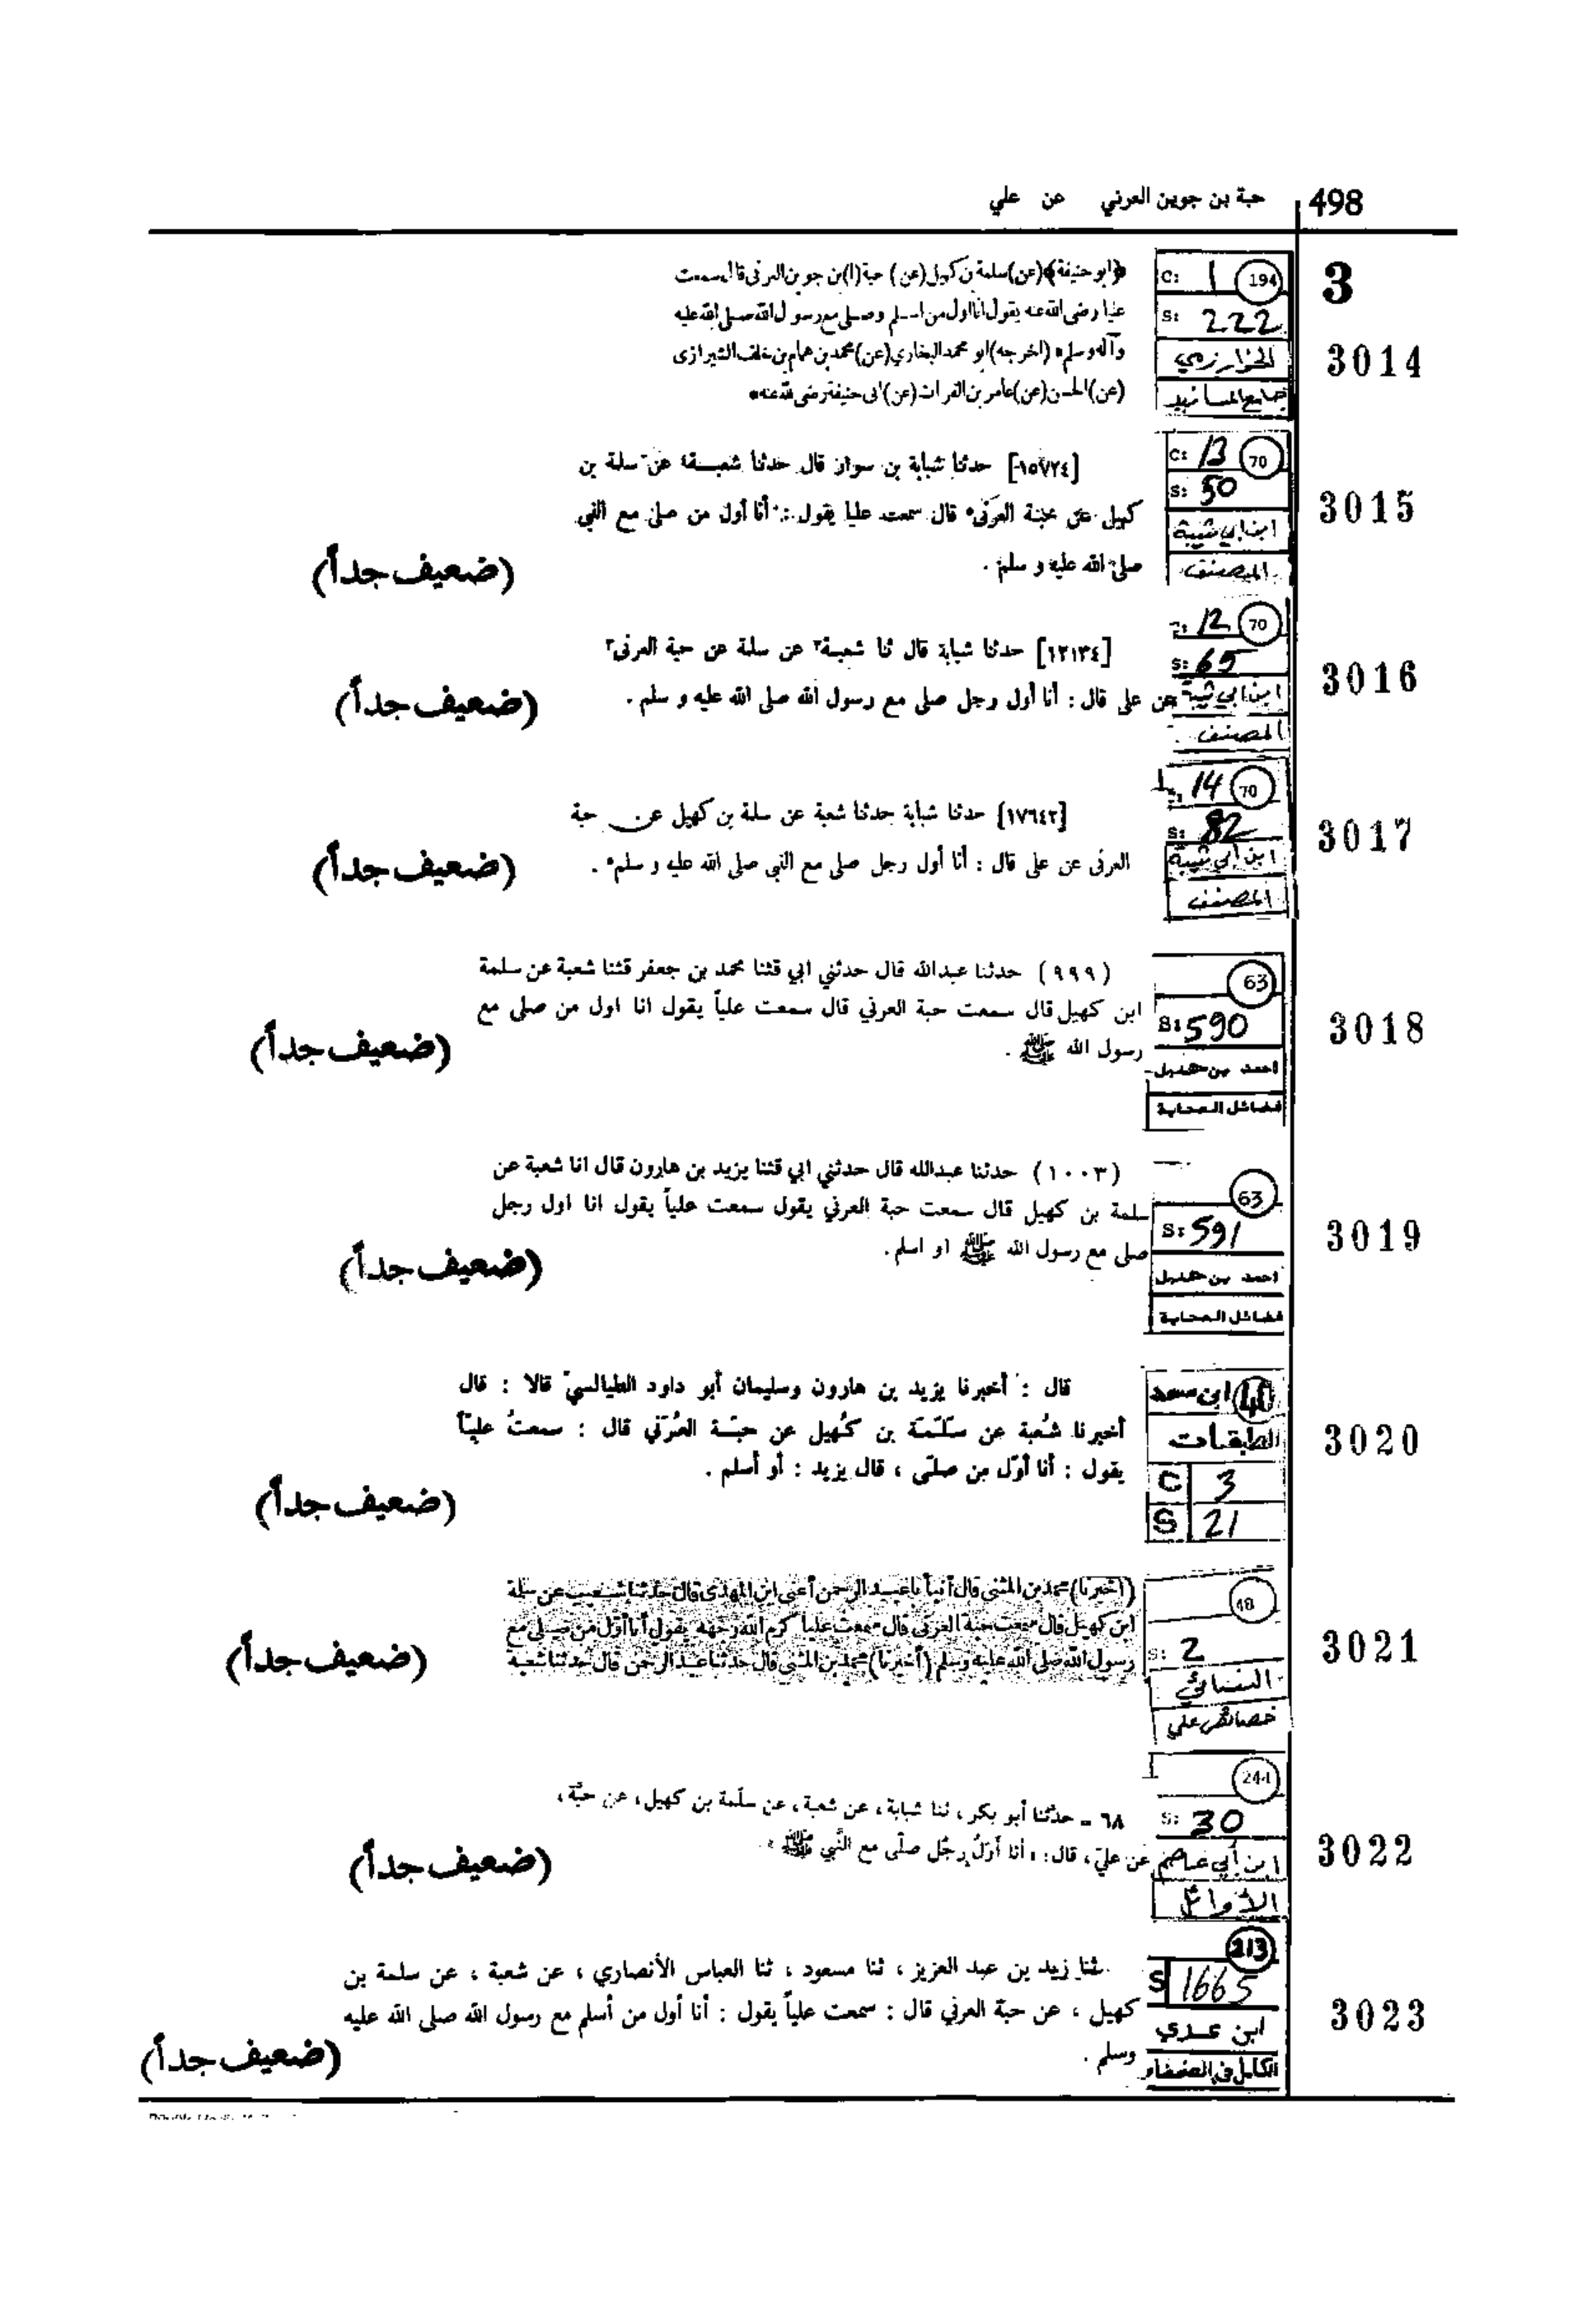 498 حبة بن جوين العرني عن علي
3
3014
C: 1 194
S: 222
الخوارزمي
جامع المسانيد
﴿ابو حنيفة﴾(عن)سلمة بن كهيل(عن) حبة(ا)بن جوين العرنى قال سمعت
عليا رضى الله عنه يقول انا اول من اسلم وصلى مع رسول الله صلى الله عليه
وآله وسلم* (اخرجه)ابو محمد البخاري(عن)محمد بن همام بن خلف الشيرازى
(عن)الحسن(عن)عامر بن الفرات(عن)ابى حنيفة رضى الله عنه*
3015
C: 13 70
S: 50
ابن ابي شيبة
المصنف
[١٥٧٢٤] حدثنا شبابة بن سوار قال حدثنا شعبة عن سلمة بن
كهيل عن حبة العرنى قال سمعت عليا يقول : أنا أول من صلى مع النبي
صلى الله عليه و سلم .
(ضعيف جداً)
3016
12 70
S: 65
ابن ابي شيبة
المصنف
[١٢١٣٤] حدثنا شبابة قال ثنا شعبة٢ عن سلمة عن حبة العرنى٣
عن على قال : أنا أول رجل صلى مع رسول الله صلى الله عليه و سلم .
(ضعيف جداً)
3017
14 70
S: 82
ابن ابي شيبة
المصنف
[١٧٦٤٢] حدثنا شبابة حدثنا شعبة عن سلمة بن كهيل عن حبة
العرنى عن على قال : أنا أول رجل صلى مع النبي صلى الله عليه و سلم .
(ضعيف جداً)
3018
63
S: 590
احمد بن حنبل
فضائل الصحابة
(٩٩٩) حدثنا عبدالله قال حدثني ابي قثنا محمد بن جعفر قثنا شعبة عن سلمة
ابن كهيل قال سمعت حبة العرني قال سمعت علياً يقول انا اول من صلى مع
رسول الله ﷺ .
(ضعيف جداً)
3019
63
S: 591
احمد بن حنبل
فضائل الصحابة
(١٠٠٣) حدثنا عبدالله قال حدثني ابي قثنا يزيد بن هارون قال انا شعبة عن
سلمة بن كهيل قال سمعت حبة العرني يقول سمعت علياً يقول انا اول رجل
صلى مع رسول الله ﷺ او اسلم .
(ضعيف جداً)
3020
ابن سعد
الطبقات
C 3
S 21
قال : أخبرنا يزيد بن هارون وسليمان أبو داود الطيالسيّ قالا : قال
أخبرنا شُعبة عن سَلَمَة بن كُهيل عن حبّة العُرَني قال : سمعتُ عليّاً
يقول : أنا أوّل من صلّى ، قال يزيد : أو أسلم .
(ضعيف جداً)
3021
48
S: 2
النسائي
خصائص علي
(أخبرنا) محمد بن المثنى قال أنبأنا عبد الرحمن أعنى ابن المهدى قال حدثنا شعيب عن سلمة
ابن كهيل قال سمعت حبة العرنى قال سمعت عليا كرم الله وجهه يقول أنا أول من صلى مع
رسول الله صلى الله عليه وسلم (أخبرنا) محمد بن المثنى قال حدثنا عبد الرحمن قال حدثنا شعبة
(ضعيف جداً)
3022
244
S: 30
ابن أبي عاصم
الأوائل
٦٨ - حدثنا أبو بكر ، ثنا شبابة ، عن شعبة ، عن سلمة بن كهيل ، عن حبّة ،
عن عليّ ، قال : « أنا أوّلُ رجُل صلّى مع النَّبي ﷺ » .
(ضعيف جداً)
3023
213
S 1665
ابن عدي
الكامل في الضعفاء
ثنا زيد بن عبد العزيز ، ثنا مسعود ، ثنا العباس الأنصاري ، عن شعبة ، عن سلمة بن
كهيل ، عن حبّة العرني قال : سمعت علياً يقول : أنا أول من أسلم مع رسول الله صلى الله عليه
وسلم .
(ضعيف جداً)